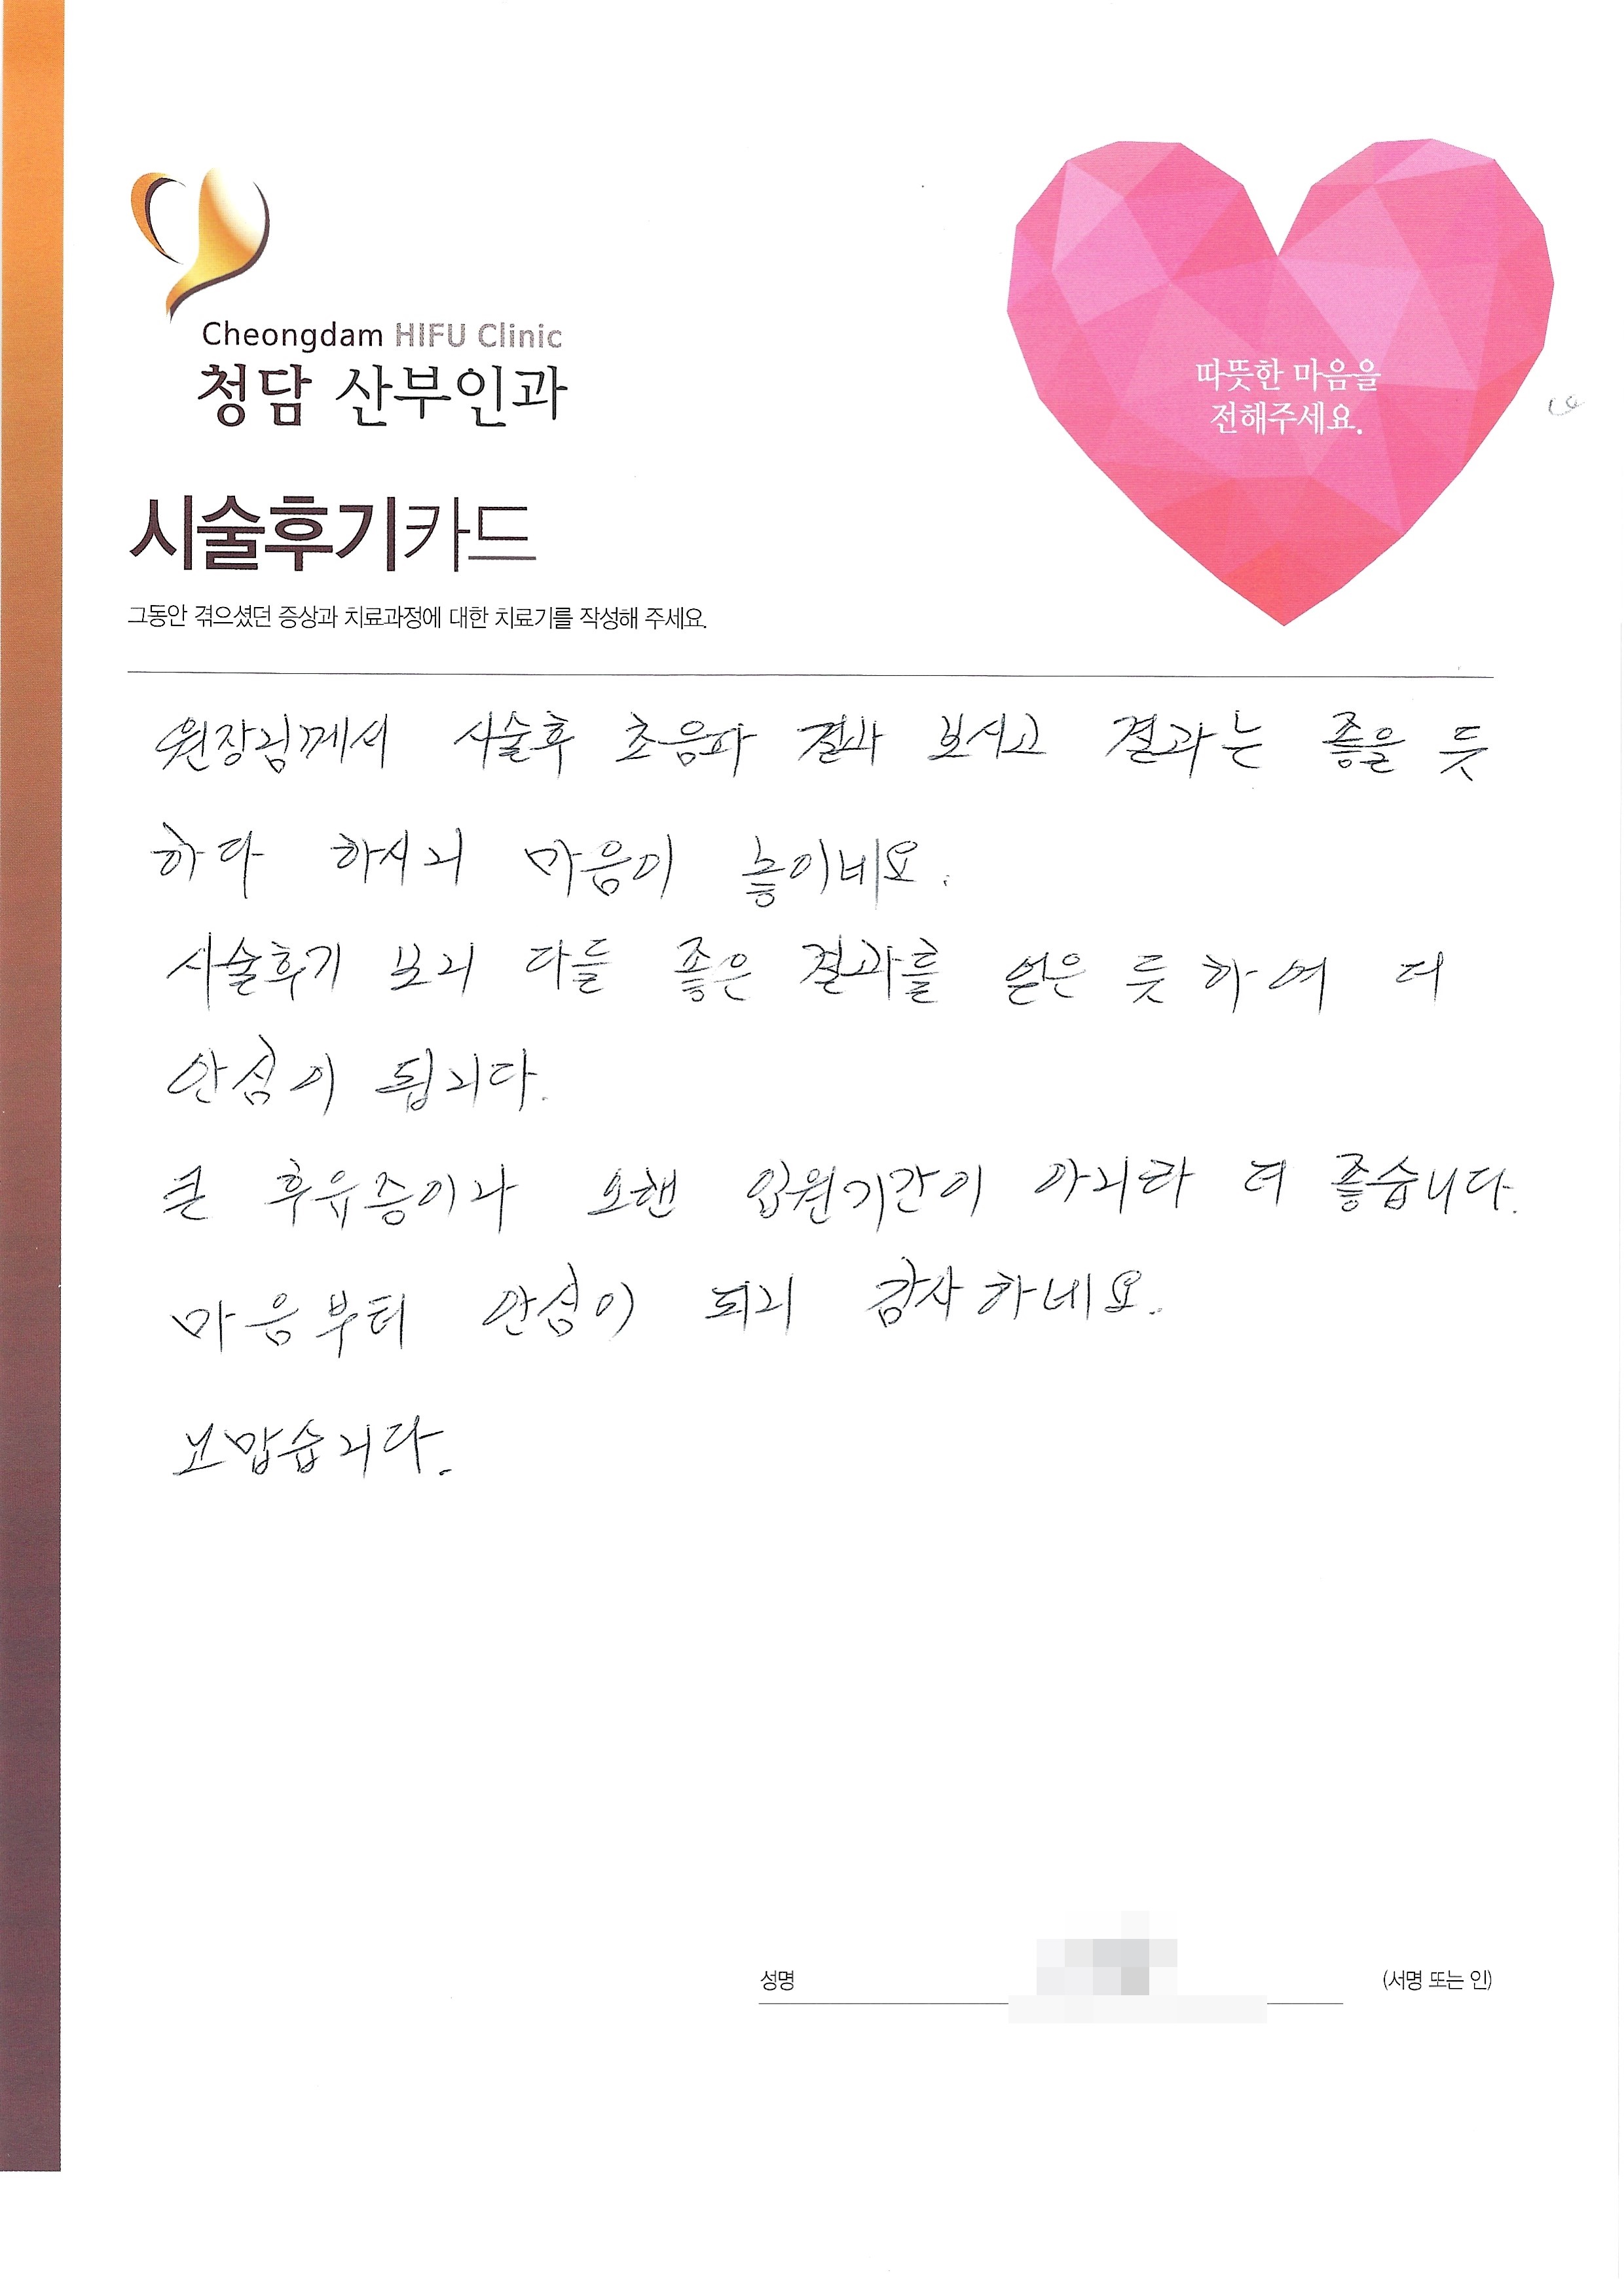 Cheongdam HIFU Clinic
청담 산부인과
따뜻한 마음을
전해주세요.
시술후기카드
그동안 겪으셨던 증상과 치료과정에 대한 치료기를 작성해 주세요.
원장님께서 시술후 초음파 결과 보시고 결과는 좋을 듯
하다 하시니 마음이 놓이네요.
시술후기 보니 다들 좋은 결과를 얻은 듯 하여 더
안심이 됩니다.
큰 후유증이나 오랜 입원기간이 아니라 더 좋습니다.
마음부터 안심이 되니 감사하네요.
고맙습니다.
성명
(서명 또는 인)